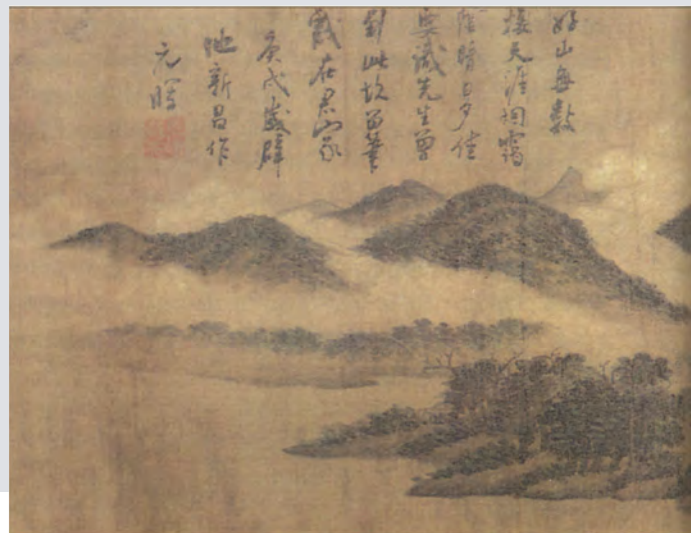 好山無數
接天涯烟靄
陰晴日夕佳
要識先生曾
到此故留筆
戲在君家
庚戌歲辟
地新昌作
元暉